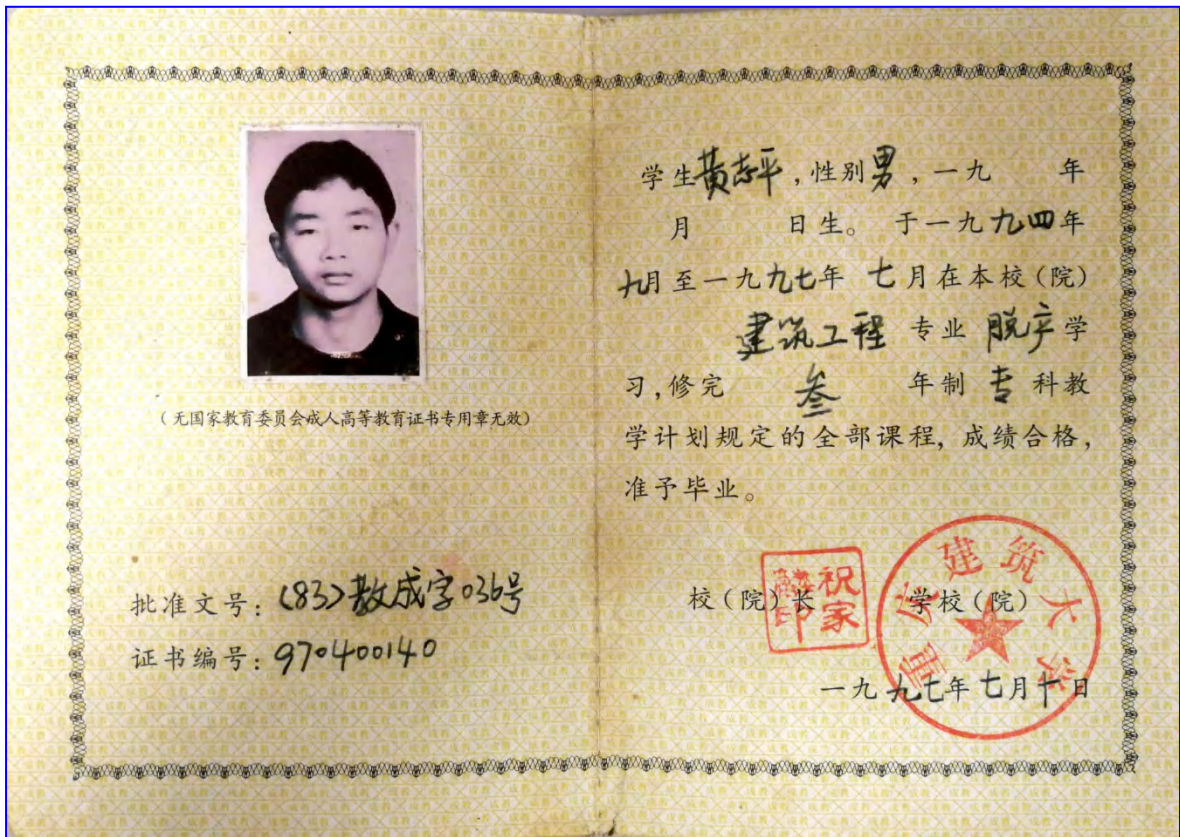 (无国家教育委员会成人高等教育证书专用章无效)
批准文号:(83)教成字036号
证书编号:970400140
学生黄志平,性别男,一九 年
月 日生。于一九九四年
九月至一九九七年 七月在本校(院)
建筑工程 专业 脱产学
习,修完 叁 年制 专科教
学计划规定的全部课程,成绩合格,
准予毕业。
校(院)长 学校(院)
祝家麟印
重庆建筑大学
一九九七年七月十日